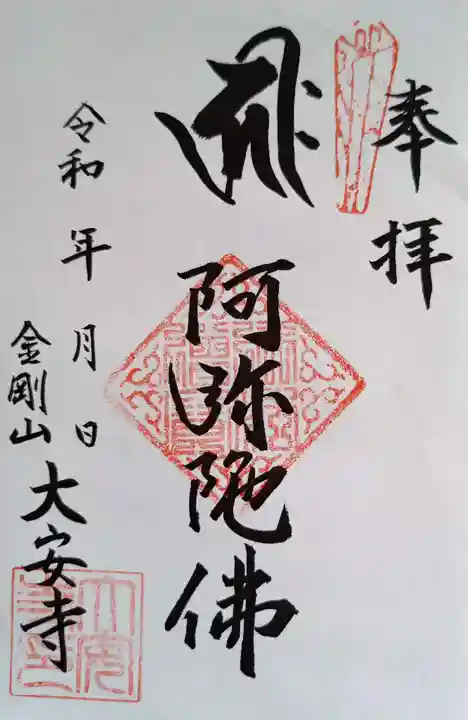 奉拝
阿弥陀佛
令和 年 月 日
金剛山
大安寺